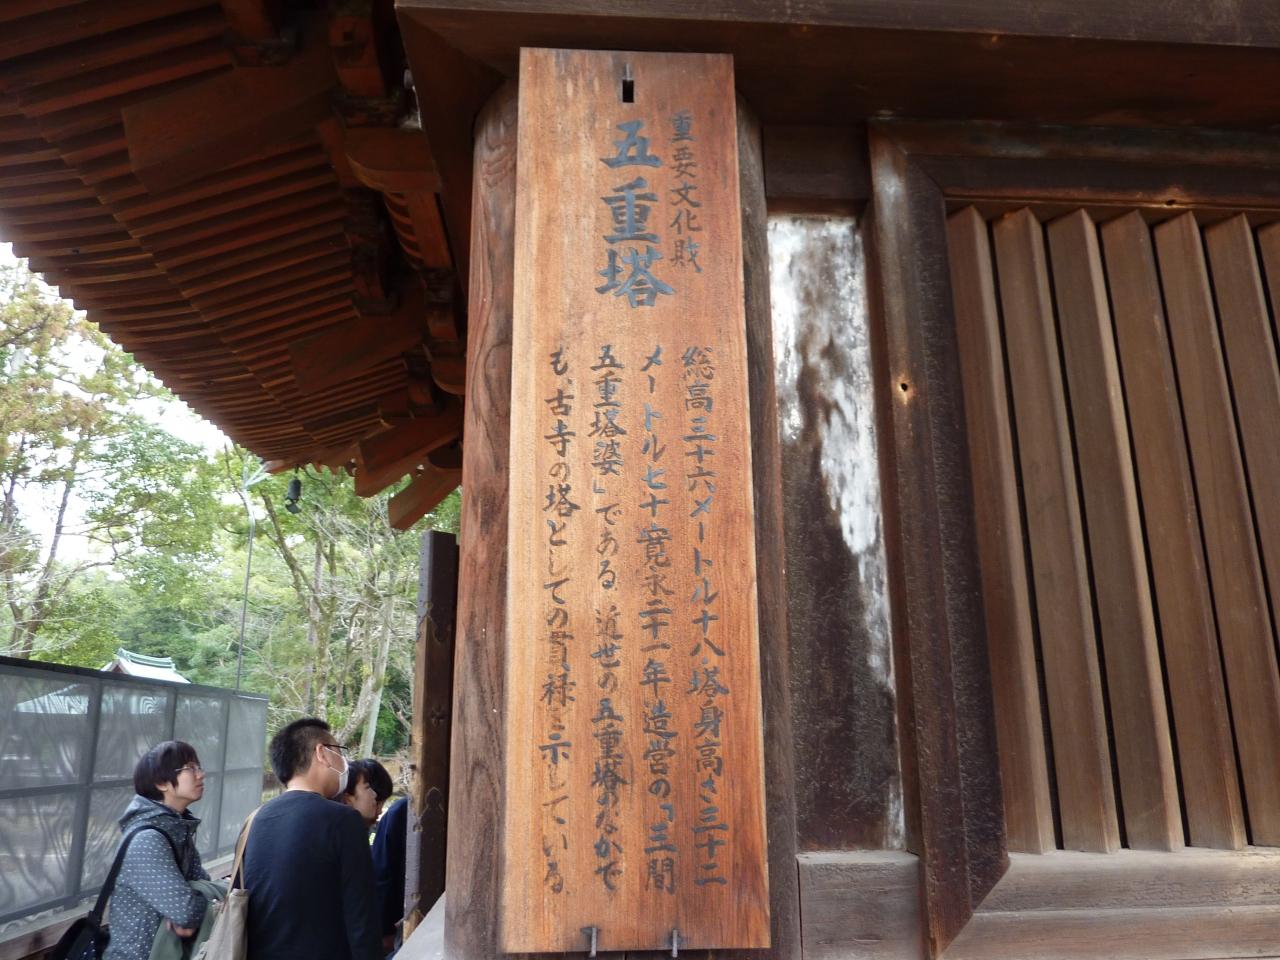 重要文化財
五重塔
総高三十六メートル十八・塔身高さ三十二
メートル七十寛永二十一年造営の「三間
五重塔婆」である。近世の五重塔のなかで
も、古寺の塔としての貫禄を示している。